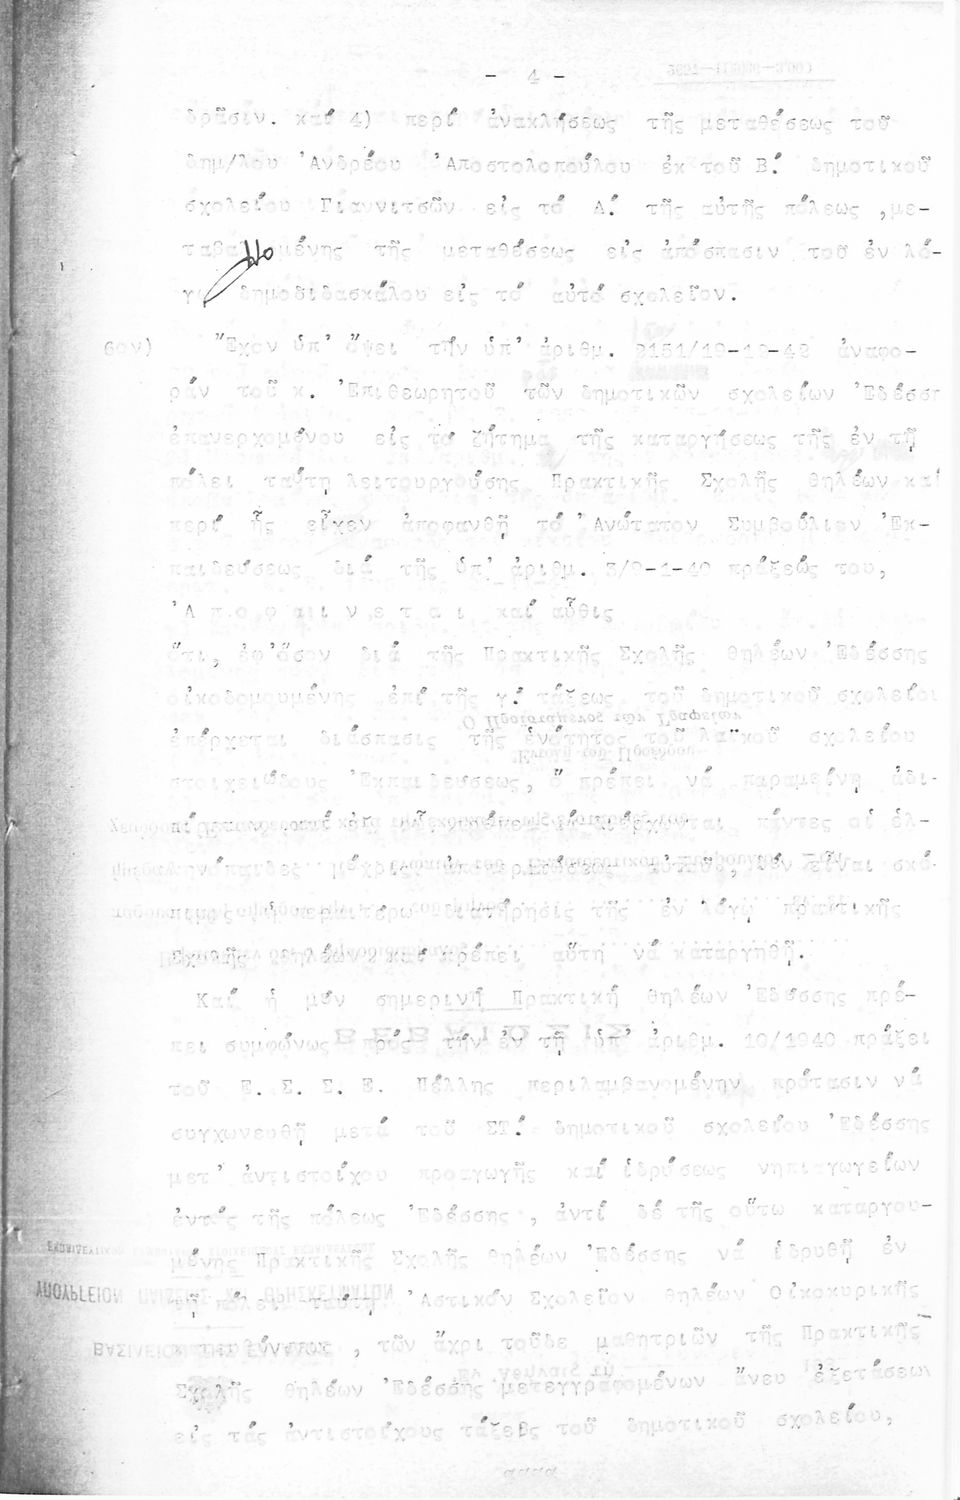 - 4 -
δρᾶσιν. καί 4) περί ἀνακλήσεως τῆς μεταθέσεως τοῦ
δημ/λου Ἀνδρέου Ἀποστολοπούλου ἐκ τοῦ Β΄. δημοτικοῦ
σχολείου Γιαννιτσῶν εἰς τό Δ΄. τῆς αὐτῆς πόλεως ,με-
ταβα μένης τῆς μεταθέσεως εἰς ἀπόσπασιν τοῦ ἐν λό-
γῳ δημοδιδασκάλου εἰς τό αὐτό σχολεῖον.
6ον) Ἔχον ὑπ' ὄψει τήν ὑπ' ἀριθμ. 2151/19-12-42 ἀναφο-
ράν τοῦ κ. Ἐπιθεωρητοῦ τῶν δημοτικῶν σχολείων Ἐδέσσης
ἐπανερχομένου εἰς τό ζήτημα τῆς καταργήσεως τῆς ἐν τῇ
πόλει ταύτῃ λειτουργούσης Πρακτικῆς Σχολῆς θηλέων καί
περί ἧς εἶχεν ἀποφανθῆ τό Ἀνώτατον Συμβούλιον Ἐκ-
παιδεύσεως διά τῆς ὑπ' ἀριθμ. 3/9-1-40 πράξεώς του,
Ἀ π ο φ α ί ν ε τ α ι καί αὖθις
ὅτι, ἐφ'ὅσον διά τῆς Πρακτικῆς Σχολῆς θηλέων Ἐδέσσης
οἰκοδομουμένης ἐπί τῆς γ΄. τάξεως τοῦ δημοτικοῦ σχολείου
ἐπέρχεται διάσπασις τῆς ἑνότητος τοῦ λαϊκοῦ σχολείου
στοιχειώδους Ἐκπαιδεύσεως, ὅ πρέπει νά παραμείνῃ ἀδι-
πάντες οἱ ἑλ-
ληνόπαιδες μέχρις ἀποπερατώσεως αὐτοῦ, δέν εἶναι σκό-
πιμος ἡ περαιτέρω διατήρησις τῆς ἐν λόγῳ πρακτικῆς
Σχολῆς θηλέων καί πρέπει αὕτη νά καταργηθῇ.
Καί ἡ μέν σημερινή Πρακτική θηλέων Ἐδέσσης πρέ-
πει συμφώνως πρός τήν ἐν τῇ ὑπ' ἀριθμ. 10/1940 πράξει
τοῦ Ε. Σ. Σ. Ε. Πέλλης περιλαμβανομένην πρότασιν νά
συγχωνευθῇ μετά τοῦ ΣΤ΄. δημοτικοῦ σχολείου Ἐδέσσης
μετ' ἀντιστοίχου προαγωγῆς καί ἱδρύσεως νηπιαγωγείων
ἐντός τῆς πόλεως Ἐδέσσης , ἀντί δέ τῆς οὕτω καταργου-
μένης Πρακτικῆς Σχολῆς θηλέων Ἐδέσσης νά ἱδρυθῇ ἐν
τῇ πόλει ταύτῃ Ἀστικόν Σχολεῖον θηλέων Οἰκοκυρικῆς
κατευθύνσεως , τῶν ἄχρι τοῦδε μαθητριῶν τῆς Πρακτικῆς
Σχολῆς θηλέων Ἐδέσσης μετεγγραφομένων ἄνευ ἐξετάσεων
εἰς τάς ἀντιστοίχους τάξεις τοῦ δημοτικοῦ σχολείου,